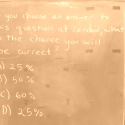 you choose an answer to
is question at random what
the chance you will
be correct?
) 25%
) 50%
C) 60%
D) 25%